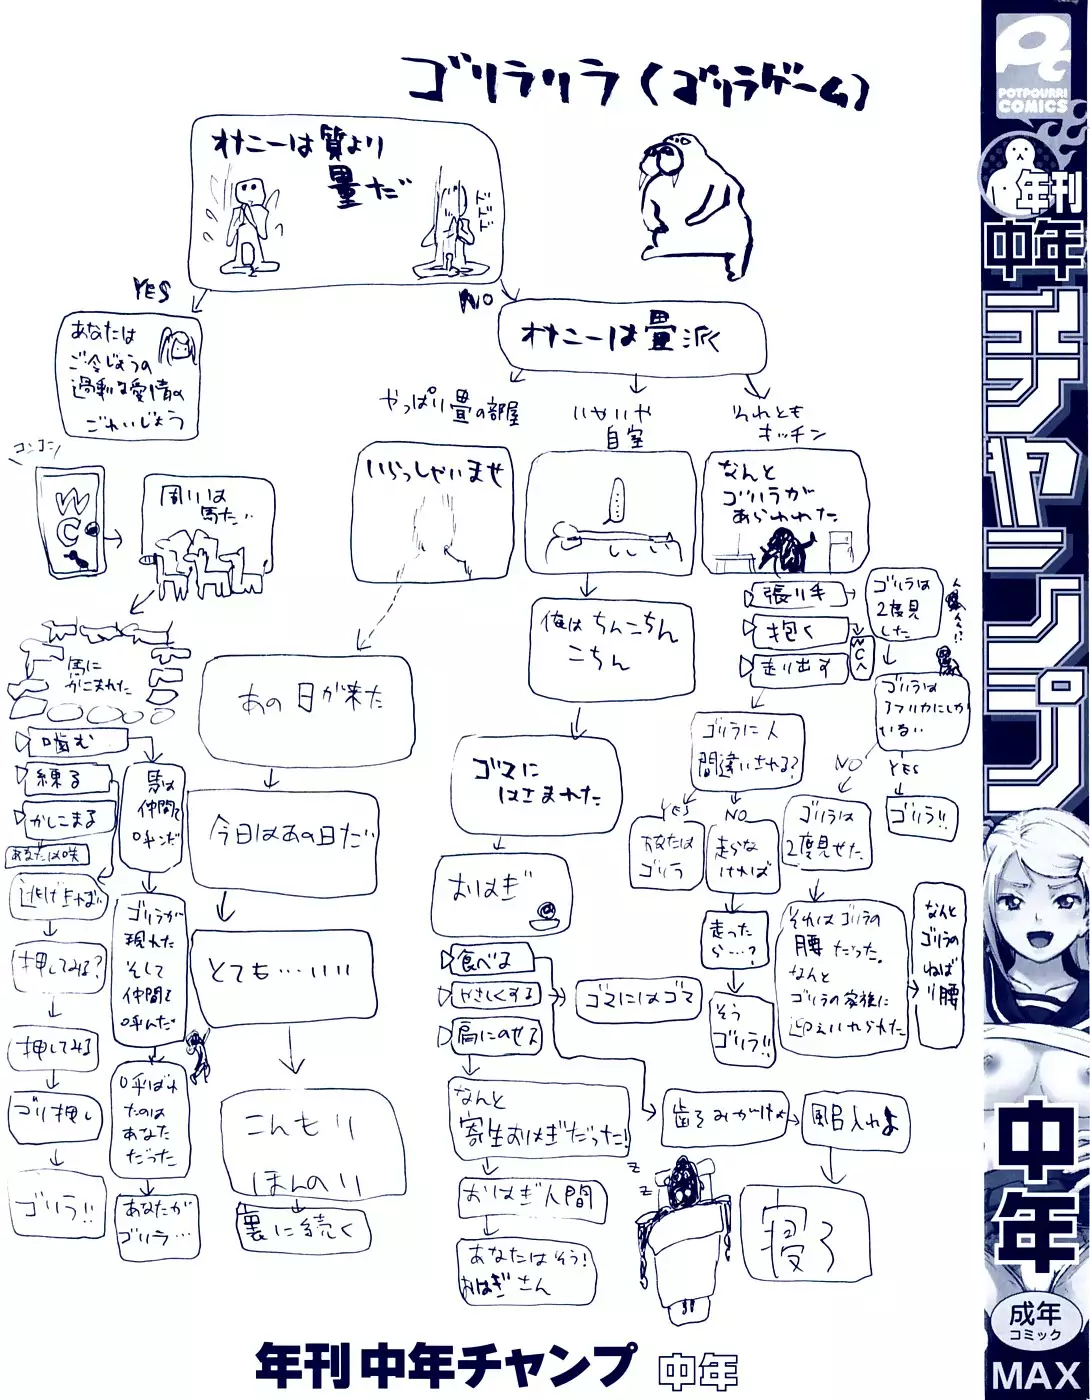 ゴリラリラ(ゴリラゲーム)
オナニーは質より
量だ
ゴゴゴ
YES
NO
あなたは
ご令じょうの
過剰な愛情の
ごれいじょう
オナニーは畳派
やっぱり畳の部屋
いやいや
自室
それとも
キッチン
コンコン
WC
周りは
馬だ…
いらっしゃいませ
なんと
ゴリラが
あらわれた
張り手
抱く
走り出す
WCへ
ゴリラは
2度見
した
ゴリラは
アフリカにしか
いない
NO
YES
ゴリラ!!
俺はちんこちん
こちん
馬に
かこまれた
噛む
練る
かしこまる
あなたは咲
馬は
仲間を
呼んだ
あの日が来た
今日はあの日だ…
とても…いい
こんもり
ほんのり
裏に続く
逃げればい
押してみる?
押してみる
ゴリ押し
ゴリラ!!
ゴリラが
現れた
そして
仲間を
呼んだ
呼ばれ
たのは
あなた
だった
あなたが
ゴリラ…
ゴマに
はさまれた
おはぎ
食べる
やさしくする
肩にのせる
ゴマにはゴマ
なんと
寄生おはぎだった!
おはぎ人間
あなたはそう!
おはぎさん
歯をみがけよ
風呂入れよ
寝ろ
z
z
ゴリラに人
間違いされる?
YES
NO
あなたは
ゴリラ
走らな
ければ
走った
ら…?
そう
ゴリラ!!
ゴリラは
2度見せた
それはゴリラの
腰だった。
なんと
ゴリラの家族に
迎え入れられた
なんと
ゴリラの
ねばり腰
年刊 中年チャンプ 中年
POTPOURRI
COMICS
年刊
中年
チャンプ
中年
成年
コミック
MAX